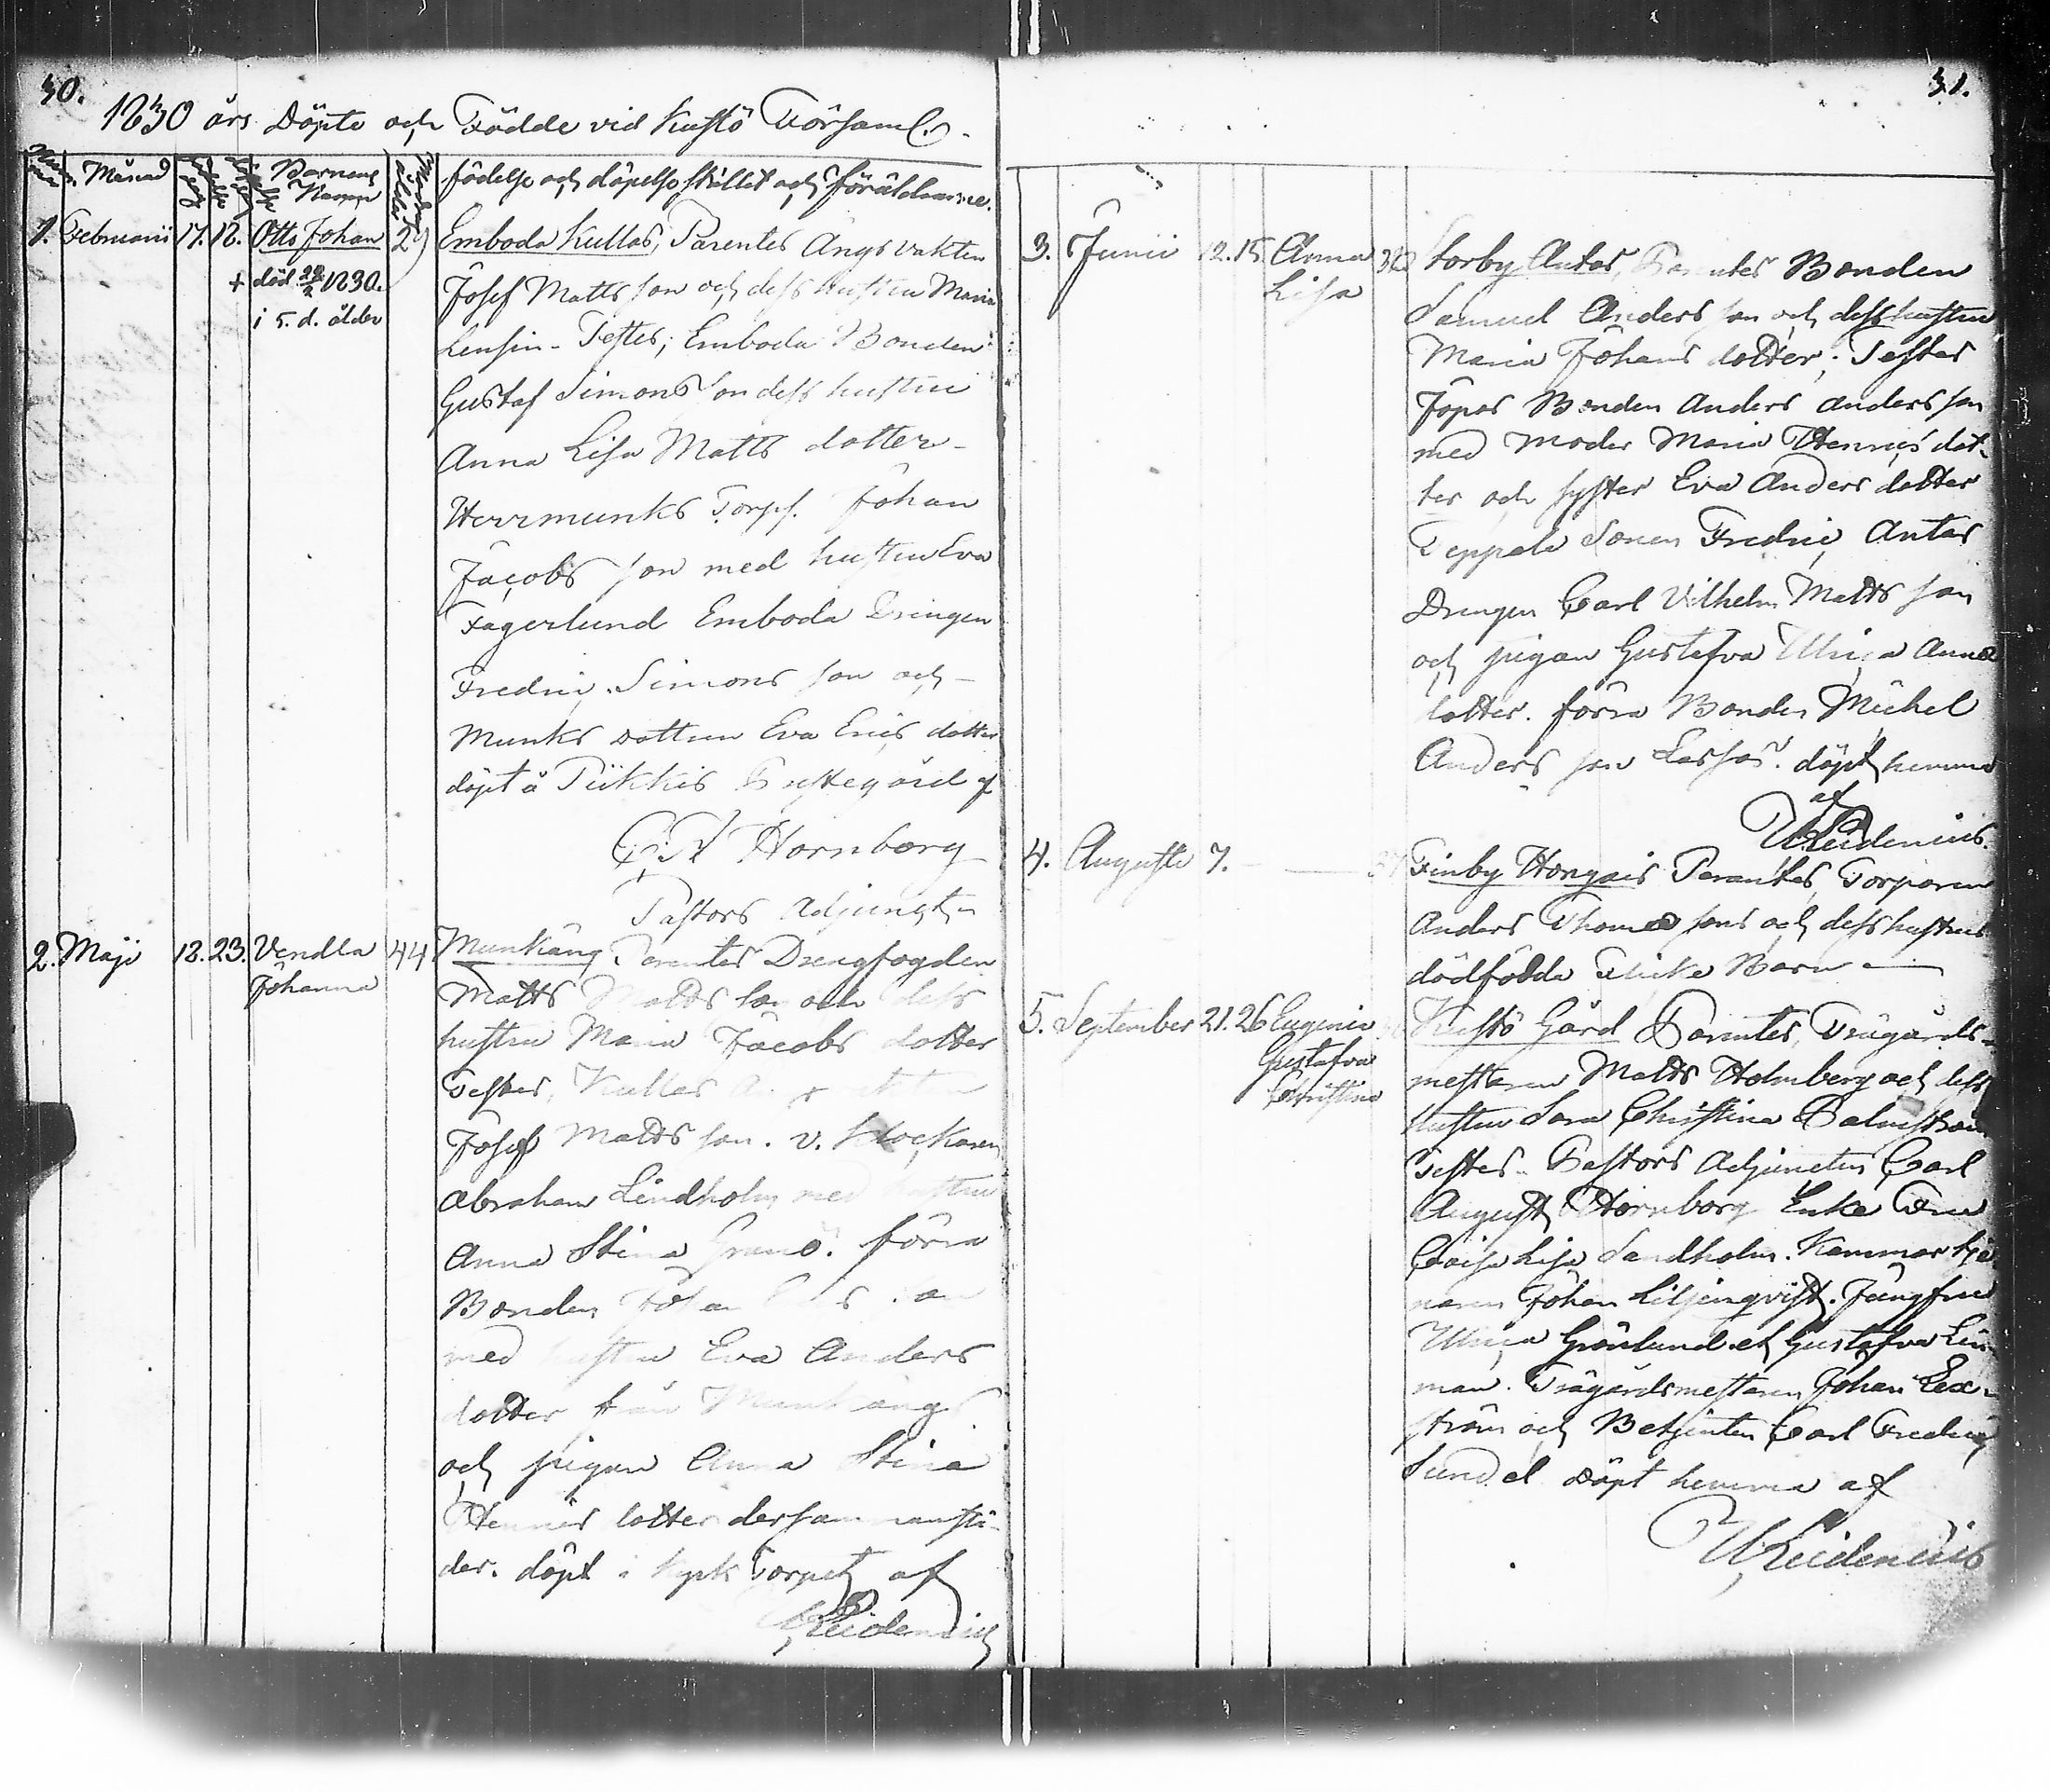 30.
1830 års Döpte och Födde vid Kustö Församl.
Månad
Barnens Namn
födelse och döpelse stället och föräldrarne.
1. Februarii 17. 18. Otto Johan
+ död 22/2 1830.
i 5. d. ålder
29
Emboda Kullas, Parentes Ängsvakten
Josef Matts son och dess hustru Maria
Lensin - Testes; Emboda Bonden
Gustaf Simons son dess hustru
Anna Lisa Matts dotter -
Herrmunks Torp. Johan
Jacobs son med hustru Eva
Fagerlund Emboda Drengen
Fredric Simons son och -
Munks dottren Eva Erics dotter
döpt å Pikkis Prestegård af
C. A Hornborg
Pastors Adjunct
2. Maji 18. 23. Vendla
Johanna
44
Munkäng, Parentes Drengfogden
Matts Matts son och dess
hustru Maria Jacobs dotter
Testes, Kullas
Josef Matts son. v. Klockaren
Abraham Lindholm med hustru
Anna Stina Granö. förra
Bonden Johan
med hustru Eva Anders
dotter från Munkängs
och pigan Anna Stina
Henrics dotter dersammanstä-
der. döpt i Kyrk Torpet af
Reidenius
31.
3. Junii 12. 15. Anna
Lisa
32
Storby Antas, Parentes Bonden
Samuel Anders son och dess hustru
Maria Johans dotter; Testes
Jöpas Bonden Anders Anders son
med moder Maria Henrics dot-
ter och syster Eva Anders dotter
Seppälä Sonen Fredric, Antas
Drengen Carl Vilhelm Matts son
och pigan Gustafva Ulrica Anders
dotter. förra Bonden Michel
Anders son Lassas. döpt hemma
af
Reidenius.
4. Augusti 7. — —
37
Finby Hongais Parentes, Torparen
Anders Thomas sons och dess hustrus
dödfödda Flicke Barn —
5. September 21. 26 Eugenia
Gustafva
Christina
Kustö Gård Parentes, Trägårds-
mestaren Matts Holmberg och dess
hustru Sara Christina Palmström
Testes. Pastors Adjuncten Carl
August Hornborg Enke Fru
Caisa Lisa Sandholm. Kammar tje-
naren Johan Liljenqvist. Jungfru
Ulrica Grönlund et Gustafva Lin-
man. Trägårdsmestaren Johan Lex-
ström och Betjenten Carl Fredric
Sundel döpt hemma af
Reidenius